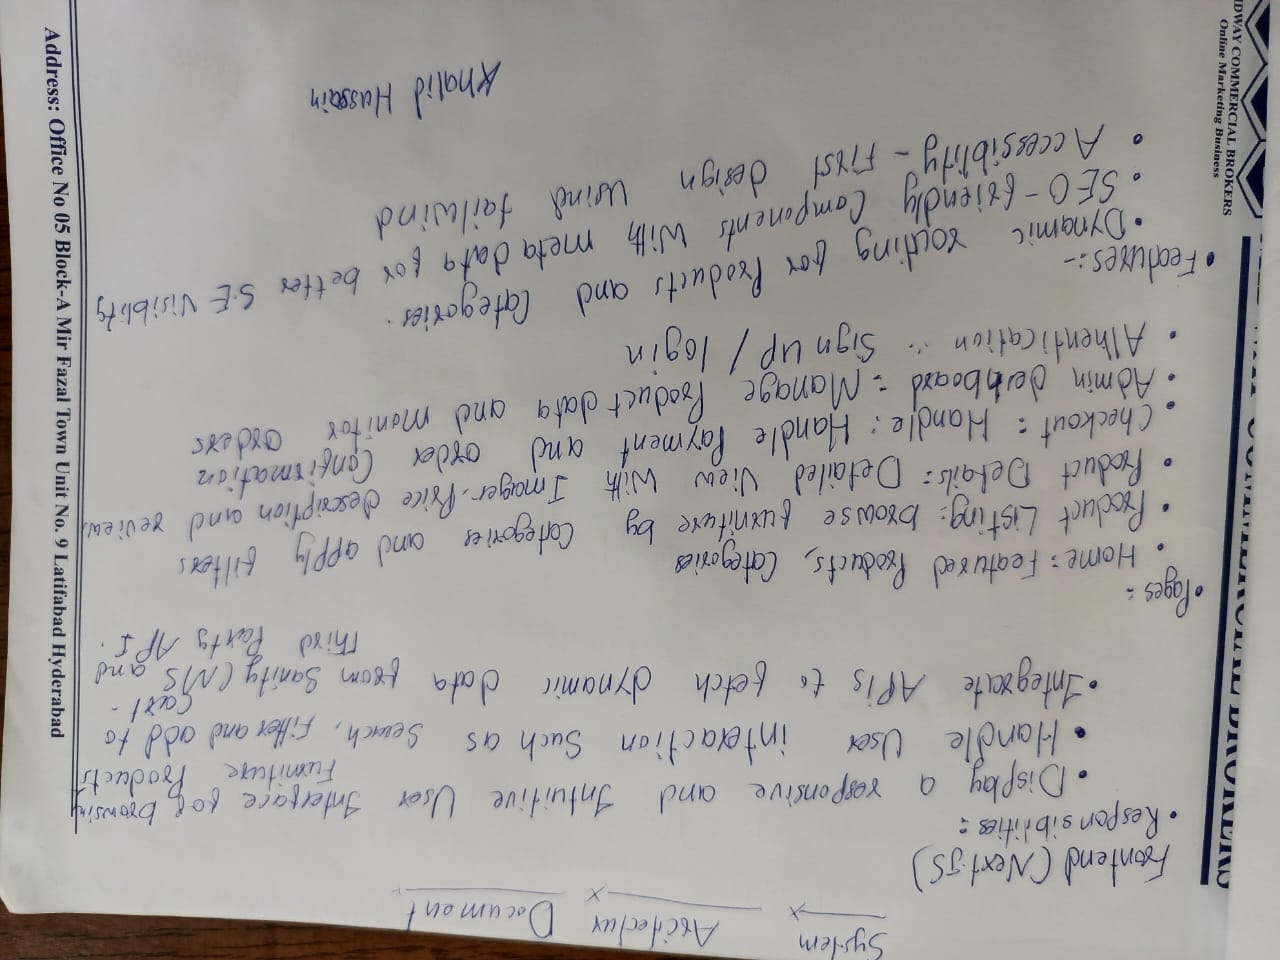 System Arcitectur Document
Frontend (Next.JS)
• Responsibilities:
• Display a responsive and Intuitive User Interface for browsing
Furniture Products
• Handle User interaction Such as Search, Filter and add to
cart.
• Integrate APIs to fetch dynamic data from Sanity CMS and
Third Party API.
• Pages:
• Home: Featured Products, Categories
• Product Listing: browse furniture by Categories and apply filters
• Product Details: Detailed View With Images, Price description and reviews
• Checkout: Handle: Handle Payment and order Confirmation
• Admin deshboard: Manage Product data and monitor orders
• Athentication: Sign up / login
• Features:-
• Dynamic routing for Products and Categories.
• SEO-friendly Components With meta data for better S.E Visiblity
• Accessiblity-First design Usind tailwind
Khalid Hussain
COMMERCIAL BROKERS
DWAY COMMERCIAL BROKERS
Online Marketing Business
Address: Office No 05 Block-A Mir Fazal Town Unit No. 9 Latifabad Hyderabad